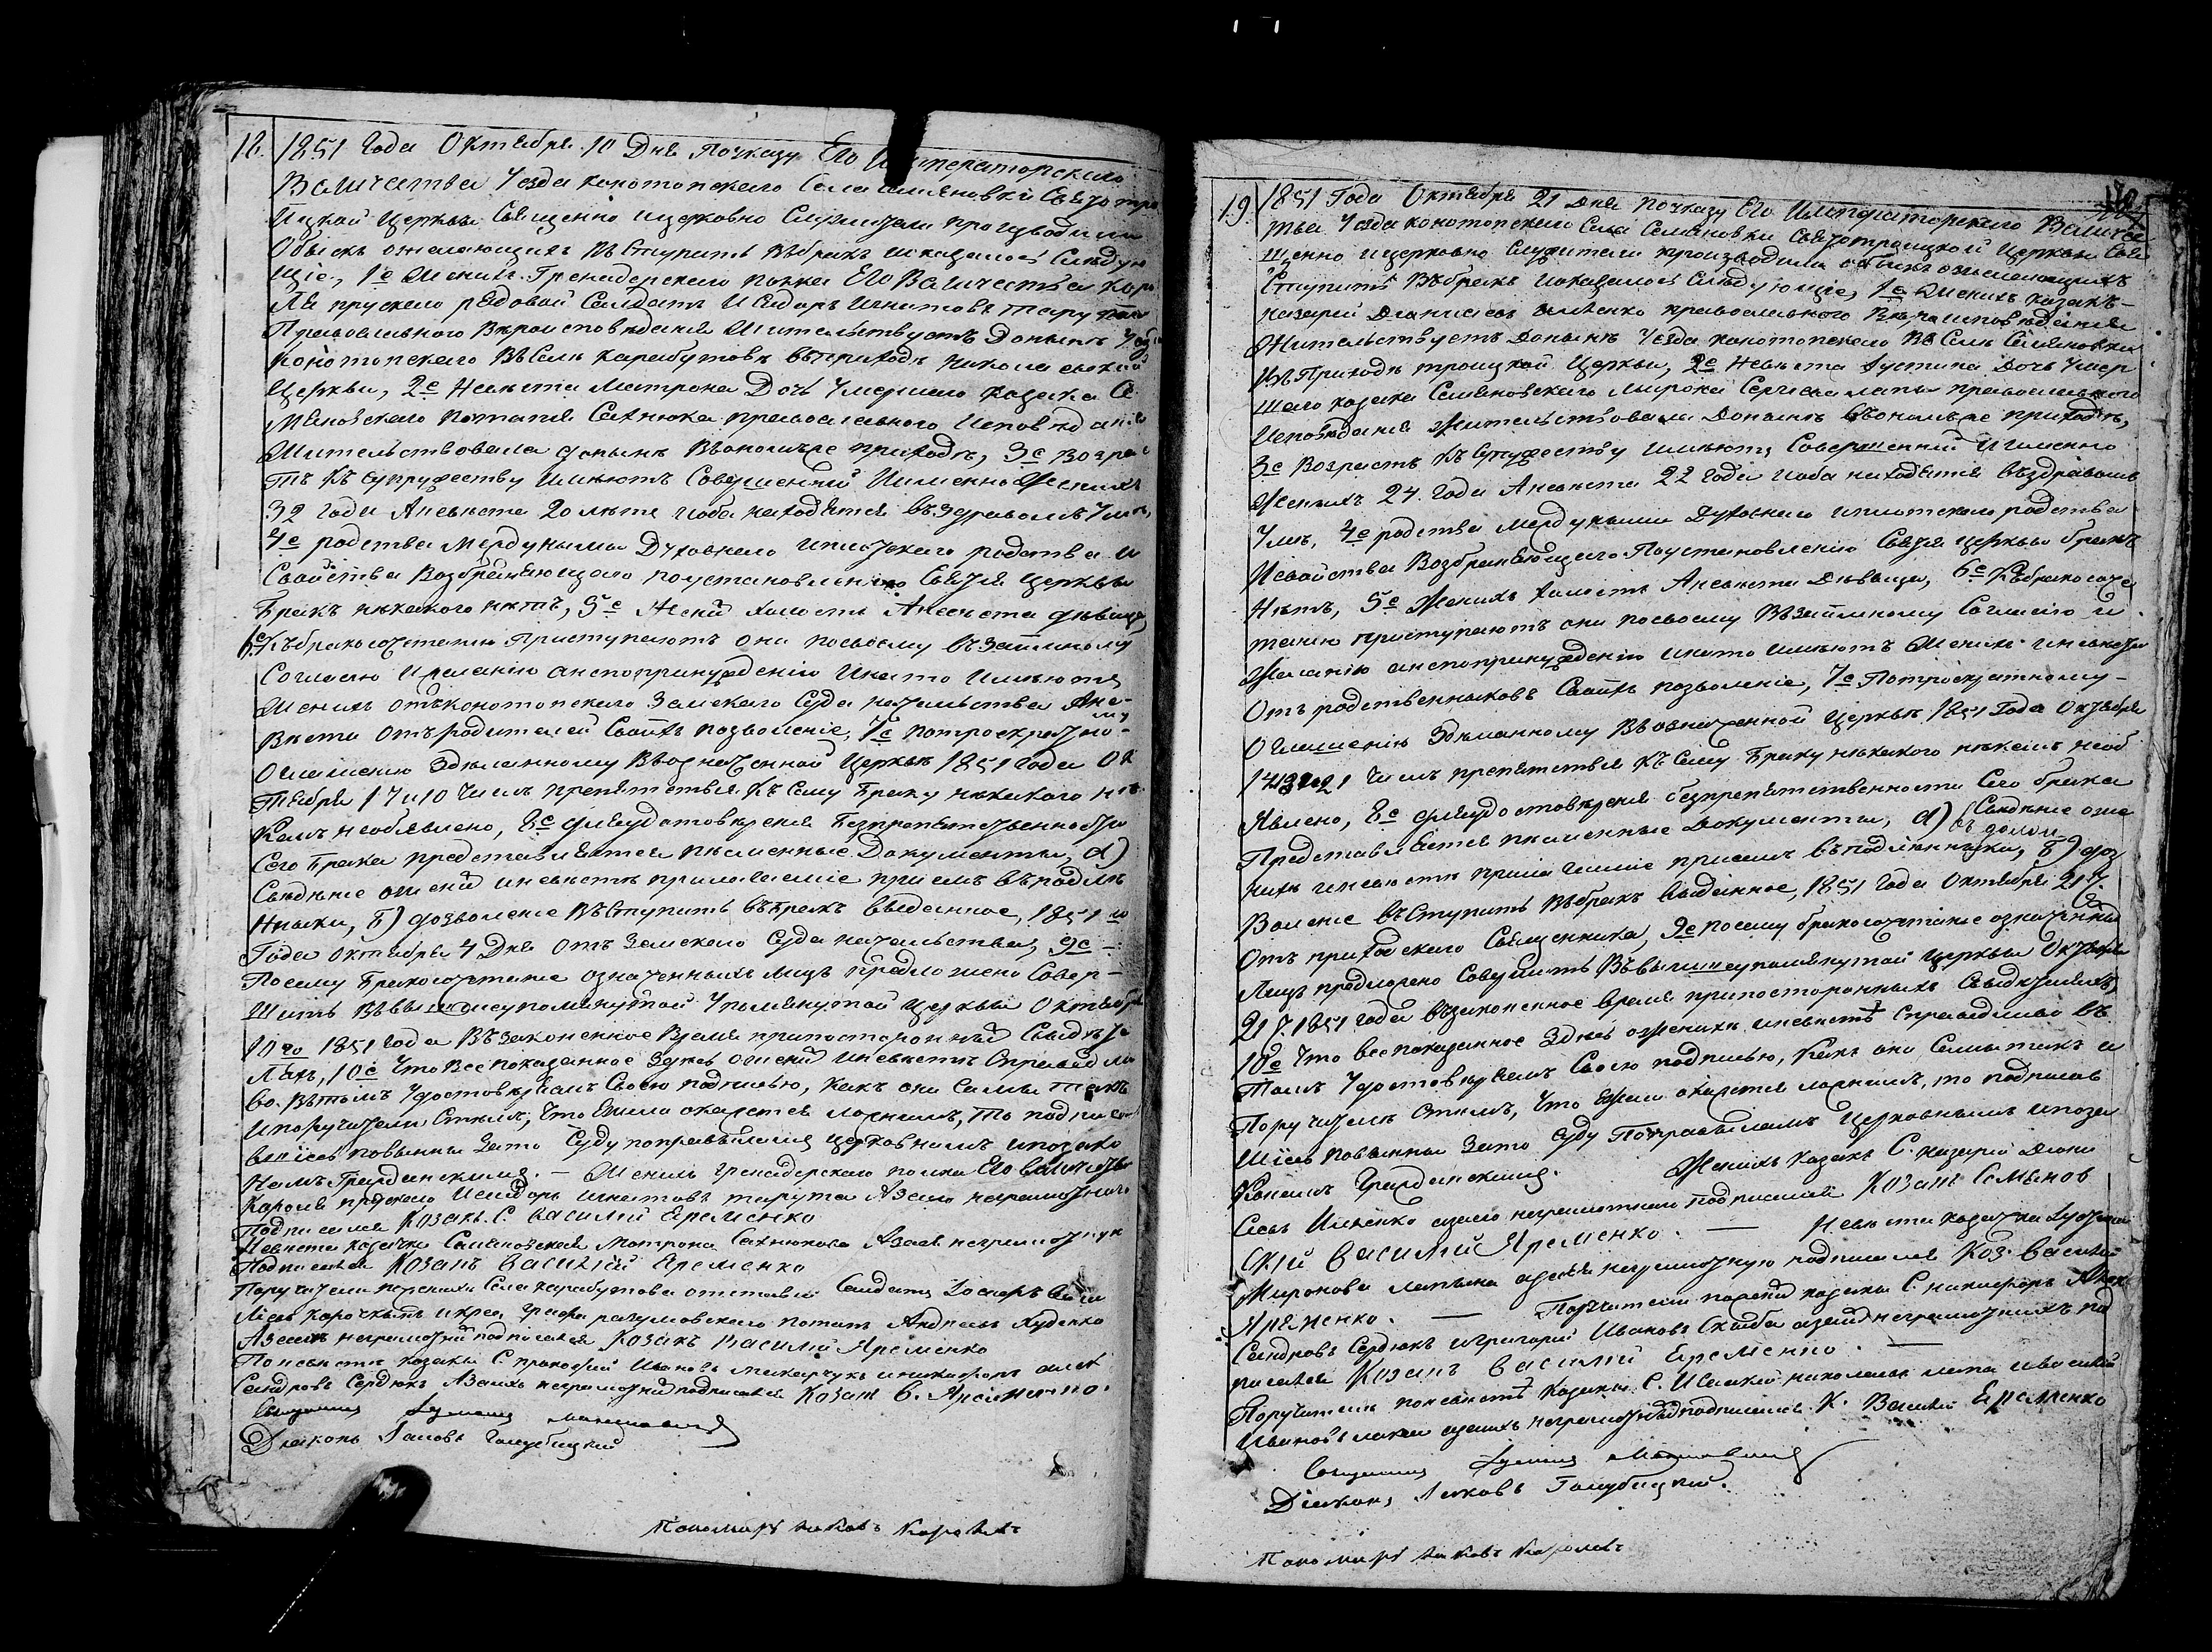 18. 1851 Года Октября 10 Дня Поуказу Его Императорскаго
Величества Уезда конотопскаго Села Семяновки Святотро
ицкой Церкви Священно ицерковно Служители производили
Обыскъ ожелающихъ въСтупить Въбракъ иоказалось Следую
щіе, 1е Женихъ Гренадерскаго полка Его Величества Коро
ля прускаго рядовой Солдатъ Исидоръ Игнатовъ Тарута
Православнаго Вероисповеданія Жительствуетъ Донынѣ Уезда
Конотопскаго ВъСелѣ карабутовѣ въприходѣ николаевской
Церкви, 2е Невѣста Матрона Дочь Умершаго козака Се
мяновскаго Потапія Сахнюка православнаго Исповеданія
Жительствовала донынѣ Въономъже приходѣ, 3е Возрас
тъ Къ Супружеству имеютъ Совершенный Иименно Женихъ
32 года Аневѣста 20 лѣтъ иоба находятся въздравомъ Умѣ,
4е родства Междуными Духовнаго иплотскаго родства и
Свойства Возбраняющаго поустановленію Святія Церкви
Бракъ никакого нѣтъ, 5е Жених холостъ Аневѣста дѣвица,
6е Къбракосочетанію Приступаютъ они посвоему въЗаимному
Согласію ижеланію анепопринужденію Инато Имеютъ
Женихъ отъконотопскаго Земскаго Суда начальства Ане-
вѣста отъродителей Своихъ позволеніе, 7е потроекратно-
му Оглашенію Зделанному Въозначенной Церквѣ 1851 года Ок
тября 1 7 и 10 Чиселъ препятствія Къ Сему Браку никакого ни
Кемъ необявлено, 8е дляудостовѣренія Безпрепятственности
Сего Брака представляются письменные Документы, а)
Сведеніе ожених иневѣстѣ прилагаеміе присемъ въподлин
никѣ, б) дозволеніе ВъСтупить въбракъ выданное, 1851 го
Года октября 4 Дня отъ Земскаго Суда начальства, 9е
Посему Бракосочетаніе означенныхъ лицъ предложено Совер-
шить Въвышеупомянутой Упомянутой Церкви октября
10го 1851 года ВъЗаконенное Время припостороннихъ Свидете
ляхъ, 10е Что Все показанное Здесь ожених иневѣстѣ Справедли
во. Вътомъ Удостовѣряемъ Своею подписью, какъ они Самы такъ
ипоручители Стѣмъ, Что Ежели окажется ложнымъ, то подписав
шіесь повинны Зато Суду поправиламъ церковнымъ ипозако
намъ Гражданскимъ. — Женихъ Гренадерскаго полка Его величества
Короля прускаго Исидоръ Игнатовъ тарута Азаего неграмотнаго
Подписался Козакъ С. Василій Еременко
Невѣста козачка Семяновская Матрона Сахнюкова Азаея неграмотную
Подписался Козакъ Василій Еременко
Поручители пожениху Села карабутова отставны Солдатъ
Азаихъ неграмотній подписался Козакъ Василій Яременко
Поневѣстѣ козаки С. прокофій Ивановъ Макарчукъ иникифоръ алек
сандровъ Сердюкъ Азаихъ неграмотній подписался Козакъ В. Яременко.
Священникъ
Діяконъ Іаковъ Голубицкій
Пономарь Іаковъ Королевъ
19. 1851 Года Октября 21 Дня поуказу Его Императорскаго Величес
тва Уезда конотопскаго Села Семяновки Святотроицкой Церкви Свя
щенно ицерковно Служители производили обыскъ ожелающихъ
Ступить Въбракъ иоказалось Следующіе, 1е Женихъ козакъ-
назарій Діонисіевъ православнаго Вероисповеданія
Жительствуетъ Донынѣ Уезда конотопскаго ВъСелѣ Семяновки
ВъПриходѣ троицкой Церкви, 2е Невѣста Іустина Дочь Умер
шаго козака Семяновскаго Мирона Сергіева православнаго
Исповѣданія жительствовала Донынѣ въономъже приходѣ,
3е Возрастъ Къ Супружеству имеютъ Совершенній Иименно
Женихъ 24. года Аневѣста 22 года иоба находятся въздравомъ
Умѣ, 4е родства междуными Духовнаго иплотскаго родства
Исвойства Возбраняющаго Поустановленію Святія Церкви бракъ
Нѣтъ, 5е Женихъ холостъ Аневѣста дѣвица, 6е Къбракосоче
танію приступаютъ они посвоему ВъЗаимному Согласію и
Желанію анепопринужденію инато имеютъ Женихъ иневѣста
Отъ родственниковъ Своихъ позволеніе, 7е Потроекратному-
Оглашенію Зделанному Въозначенной Церквѣ 1851 Года Октября
Чиселъ препятствія Къ Сему Браку никакого никемъ необ
явлено, 8е дляудостовѣренія безпрепятственности Сего брака
Представляются письменные документы, а) Сведеніе оже
нихъ иневѣстѣ прилагаміе присемъ въподлинникѣ, б) доз
воленіе въСтупить Въбракъ выданное, 1851 года Октября 21
Отъ приходскаго Священника, 9е посему бракосочетаніе означенныхъ
Лицъ предложено Совершить Въвышеупомянутой Церкви Октября
21 1851 года възаконенное время припостороннихъ Свидетеляхъ,
10е Что все показанное Здесь оженихъ иневѣстѣ Справедливо въ
томъ Удостовѣряемъ Своею подписью, какъ они Самы такъ и
Поручители Стѣмъ, Что Ежели окажется ложнымъ, то подписав
шіесь повинны Зато Суду Поправиламъ Церковнымъ ипоза
конамъ Гражданскимъ. Женихъ козакъ С. назарій Діони
сіевъ азаего неграмотнаго подписался Козакъ Семянов
скій Василій Яременко. — Невѣста козачка Іустина
Миронова азаея неграмотную подписался Коз. Василій
Яременко. — Поручители пожених козаки С. никифоръ Алек
сандровъ Сердюкъ игригорій Ивановъ Скиба азаихъ неграмотнихъ под
писался Козакъ Василій Еременко. —
Поручители поневѣстѣ козаки С. николаевъ ивасилій
Ивановъ азаихъ неграмотній подписался К. Василій Еременко
Священникъ
Діяконъ Іаковъ Голубицкій.
Пономарь Іаковъ Королевъ